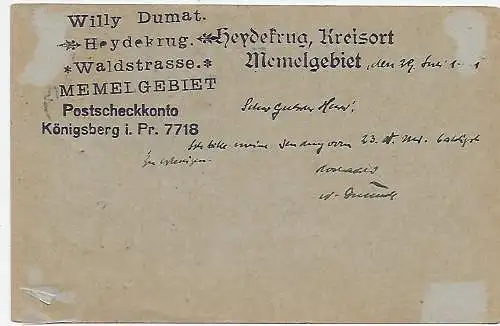 Willy Dumat.
Heydekrug.
*Waldstrasse.*
MEMELGEBIET
Postscheckkonto
Königsberg i. Pr. 7718
Heydekrug, Kreisort
Memelgebiet, den 29.
Sehr geehrter Herr!
Ich bitte meine Sendung vom 23. d. Mts.
zu
W. Dumat